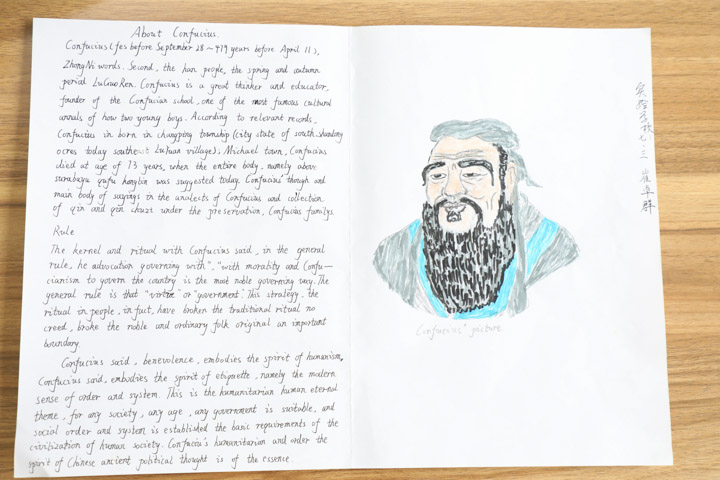 About Confucius.
Confucius (fes before September 28~479 years before April 11),
ZhongNi words. Second, the han people, the spring and autumn
period LuGuoRen. Confucius is a great thinker and educator,
founder of the Confucian school, one of the most famous cultural
annals of how two young boys. According to relevant records,
Confucius in born in changping township (city state of south shandong
ocres today southeast LuYuan village). Michael town, Confucius
died at age of 73 years, when the entire body, namely above
surabaya qufu konglin was suggested today. Confucius' though and
main body of sayings in the analects of Confucius and collection
of qin and qin chuzi under the preservation, Confucius familys.
Rule
The kernel and ritual with Confucius said, in the general
rule, he advocation governing with", "with morality and Confu—
cianism to govern the country is the most noble governing vary. The
general rule is that "virtue" or "government". This strategy, the
ritual in people, in fact, have broken the traditional ritual no
creed, broke the noble and ordinary folk original an important
boundary.
Confucius said, benevolence, embodies the spirit of humanism,
Confucius said, embodies the spirit of etiquette, namely the modern
sense of order and system. This is the humanitarian human eternal
theme, for any society, any age, any government is suitable, and
social order and system is established the basic requirements of the
civilization of human society. Confuciu's humanitarian and order the
spirit of Chinese ancient political thought is of the essence.
Confucius' picture
实验学校七.三 崔卓群